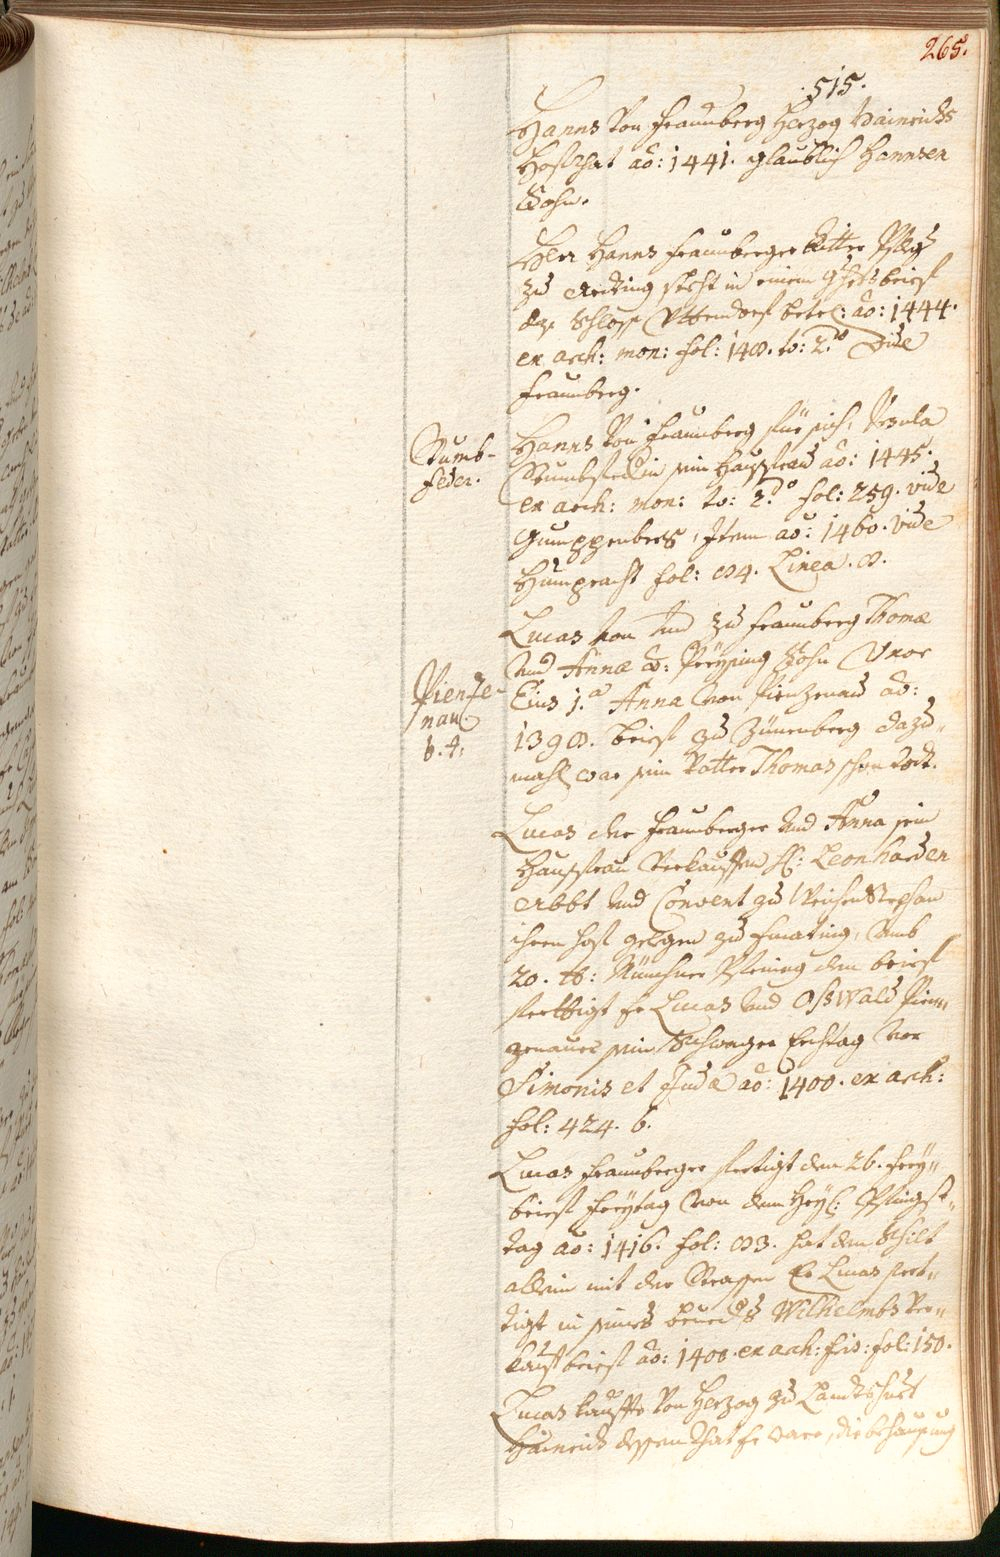 265.
515.
Hanns Von Fraunberg Herzog Hainrichs
Hofrhat ao: 1441. glaublich Hannsen
Sohn.
Herr Hanns Fraunberger Ritter Pfleg
zu Erding steht in einem
Schloss Uttendorf betr: ao: 1444.
ex arch: mon: fol: 148. to: 2.do Vide
Fraunberg.
Stumb-
feder.
Hanns Von Fraunberg für sich, Ursula
Stumbfederin sein Hausfrau ao: 1445.
ex arch: mon: to: 2.do fol: 259. vide
Gumppenberg, Item ao: 1460. vide
Humpracht fol: 84. Linea. 8.
Lucas von und zu Fraunberg Thomæ
und Annæ v: Preysing Sohn Uxor
Pienze-
nau.
b. A.
Eius 1.a Anna von Pienzenau ao:
1398. brief zu Zürnberg dazu-
mahl war sein Vatter Thomas schon todt.
Lucas der Fraunberger und Anna sein
Hausfrau Verkauffen H: Leonharden
Abbt und Convent zu Weichen Stephan
ihren hof gelegen zu umb
20. tb: Münchner Pfening den brief
ferttigt Er Lucas und Osswald Pien-
zenauer sein Schwager Erchtag vor
Simonis et Judæ ao: 1400. ex arch:
fol: 424. b.
Lucas Fraunberger fertigt den 26. frey-
brief Freytag von dem Heyl: Pfingst-
tag ao: 1416. fol: 83. hat den Schilt
allein mit der Strassen Er Lucas fert-
tigt in seines brueders Wilhelmbs Ver-
kaufbrief ao: 1408. ex arch: fris: fol: 150.
Lucas kauffte Von Herzog zu Landtshuet
Hainrich dessen Rhat Er ware, die behausung